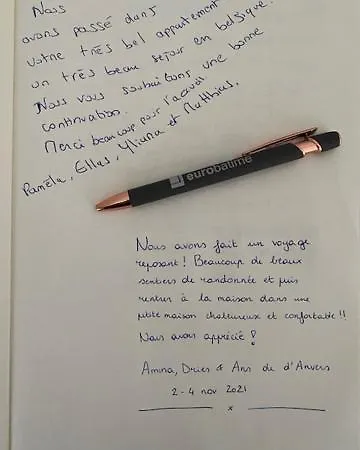 Nous
avons passé dans
votre très bel appartement
un très beau séjour en belgique.
Nous vous souhaitons une bonne
continuation.
Merci beaucoup pour l'accueil
Pamela, Elias, Yliana et Matthias.
eurobatime
Nous avons fait un voyage
reposant! Beaucoup de beaux
sentiers de randonnée et puis
rentrer à la maison dans une
ptite maison chaleureux et confortable!!
Nous avons apprécié!
Amina, Dries & Ans de d'Anvers
2-4 nov 2021
x